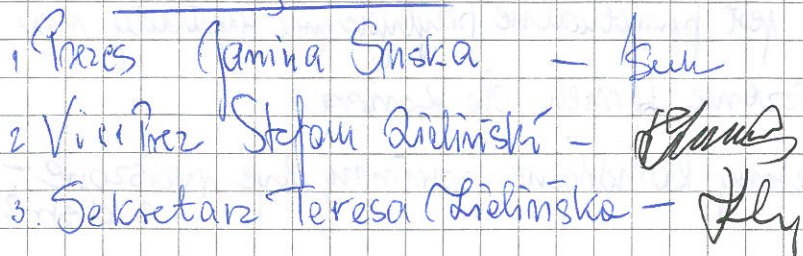 1. Prezes Janina Smska –
2 Vice Prez Stefan Zieliński –
3. Sekretarz Teresa Zielińska –